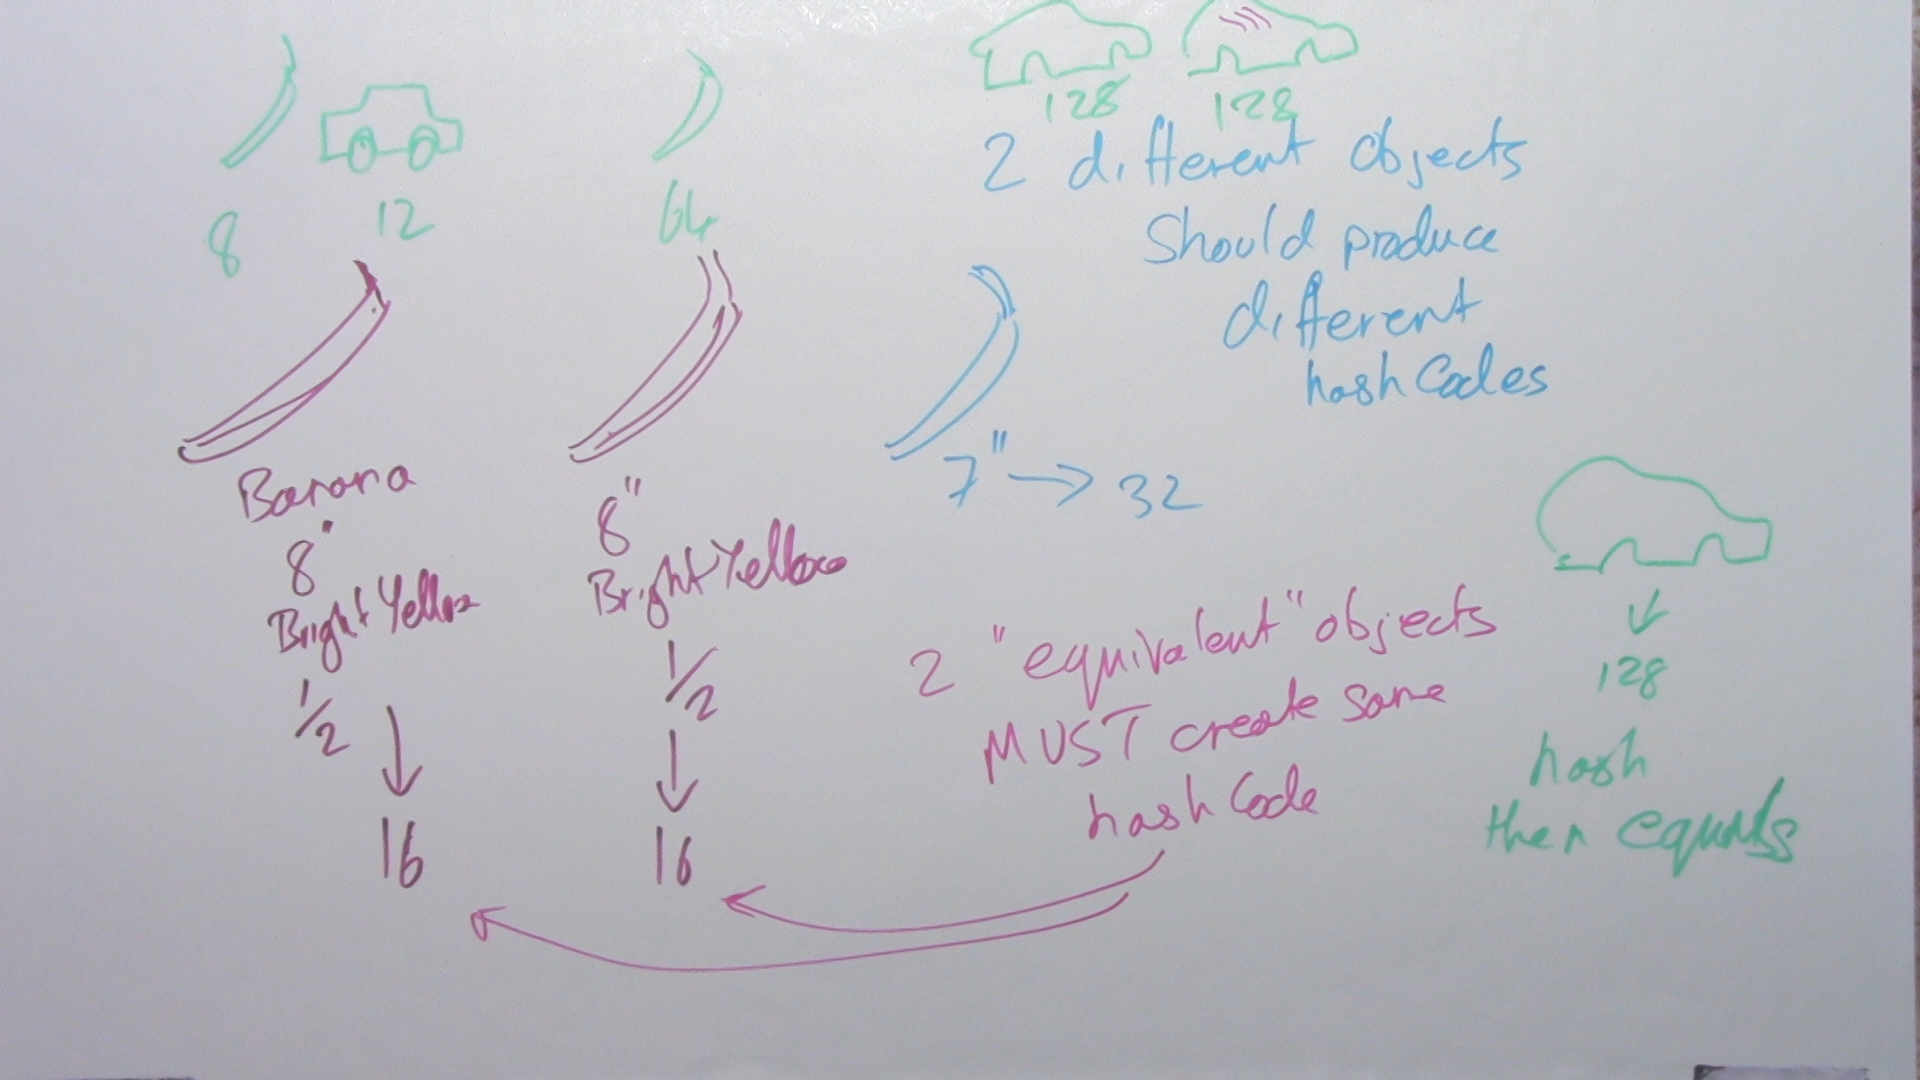 128
128
8
12
64
2 different objects
Should produce
different
hashCodes
7" → 32
Banana
8"
Bright Yellow
1/2
16
8"
Bright Yellow
1/2
16
2 "equivalent" objects
MUST create same
hashCode
128
hash
then equals